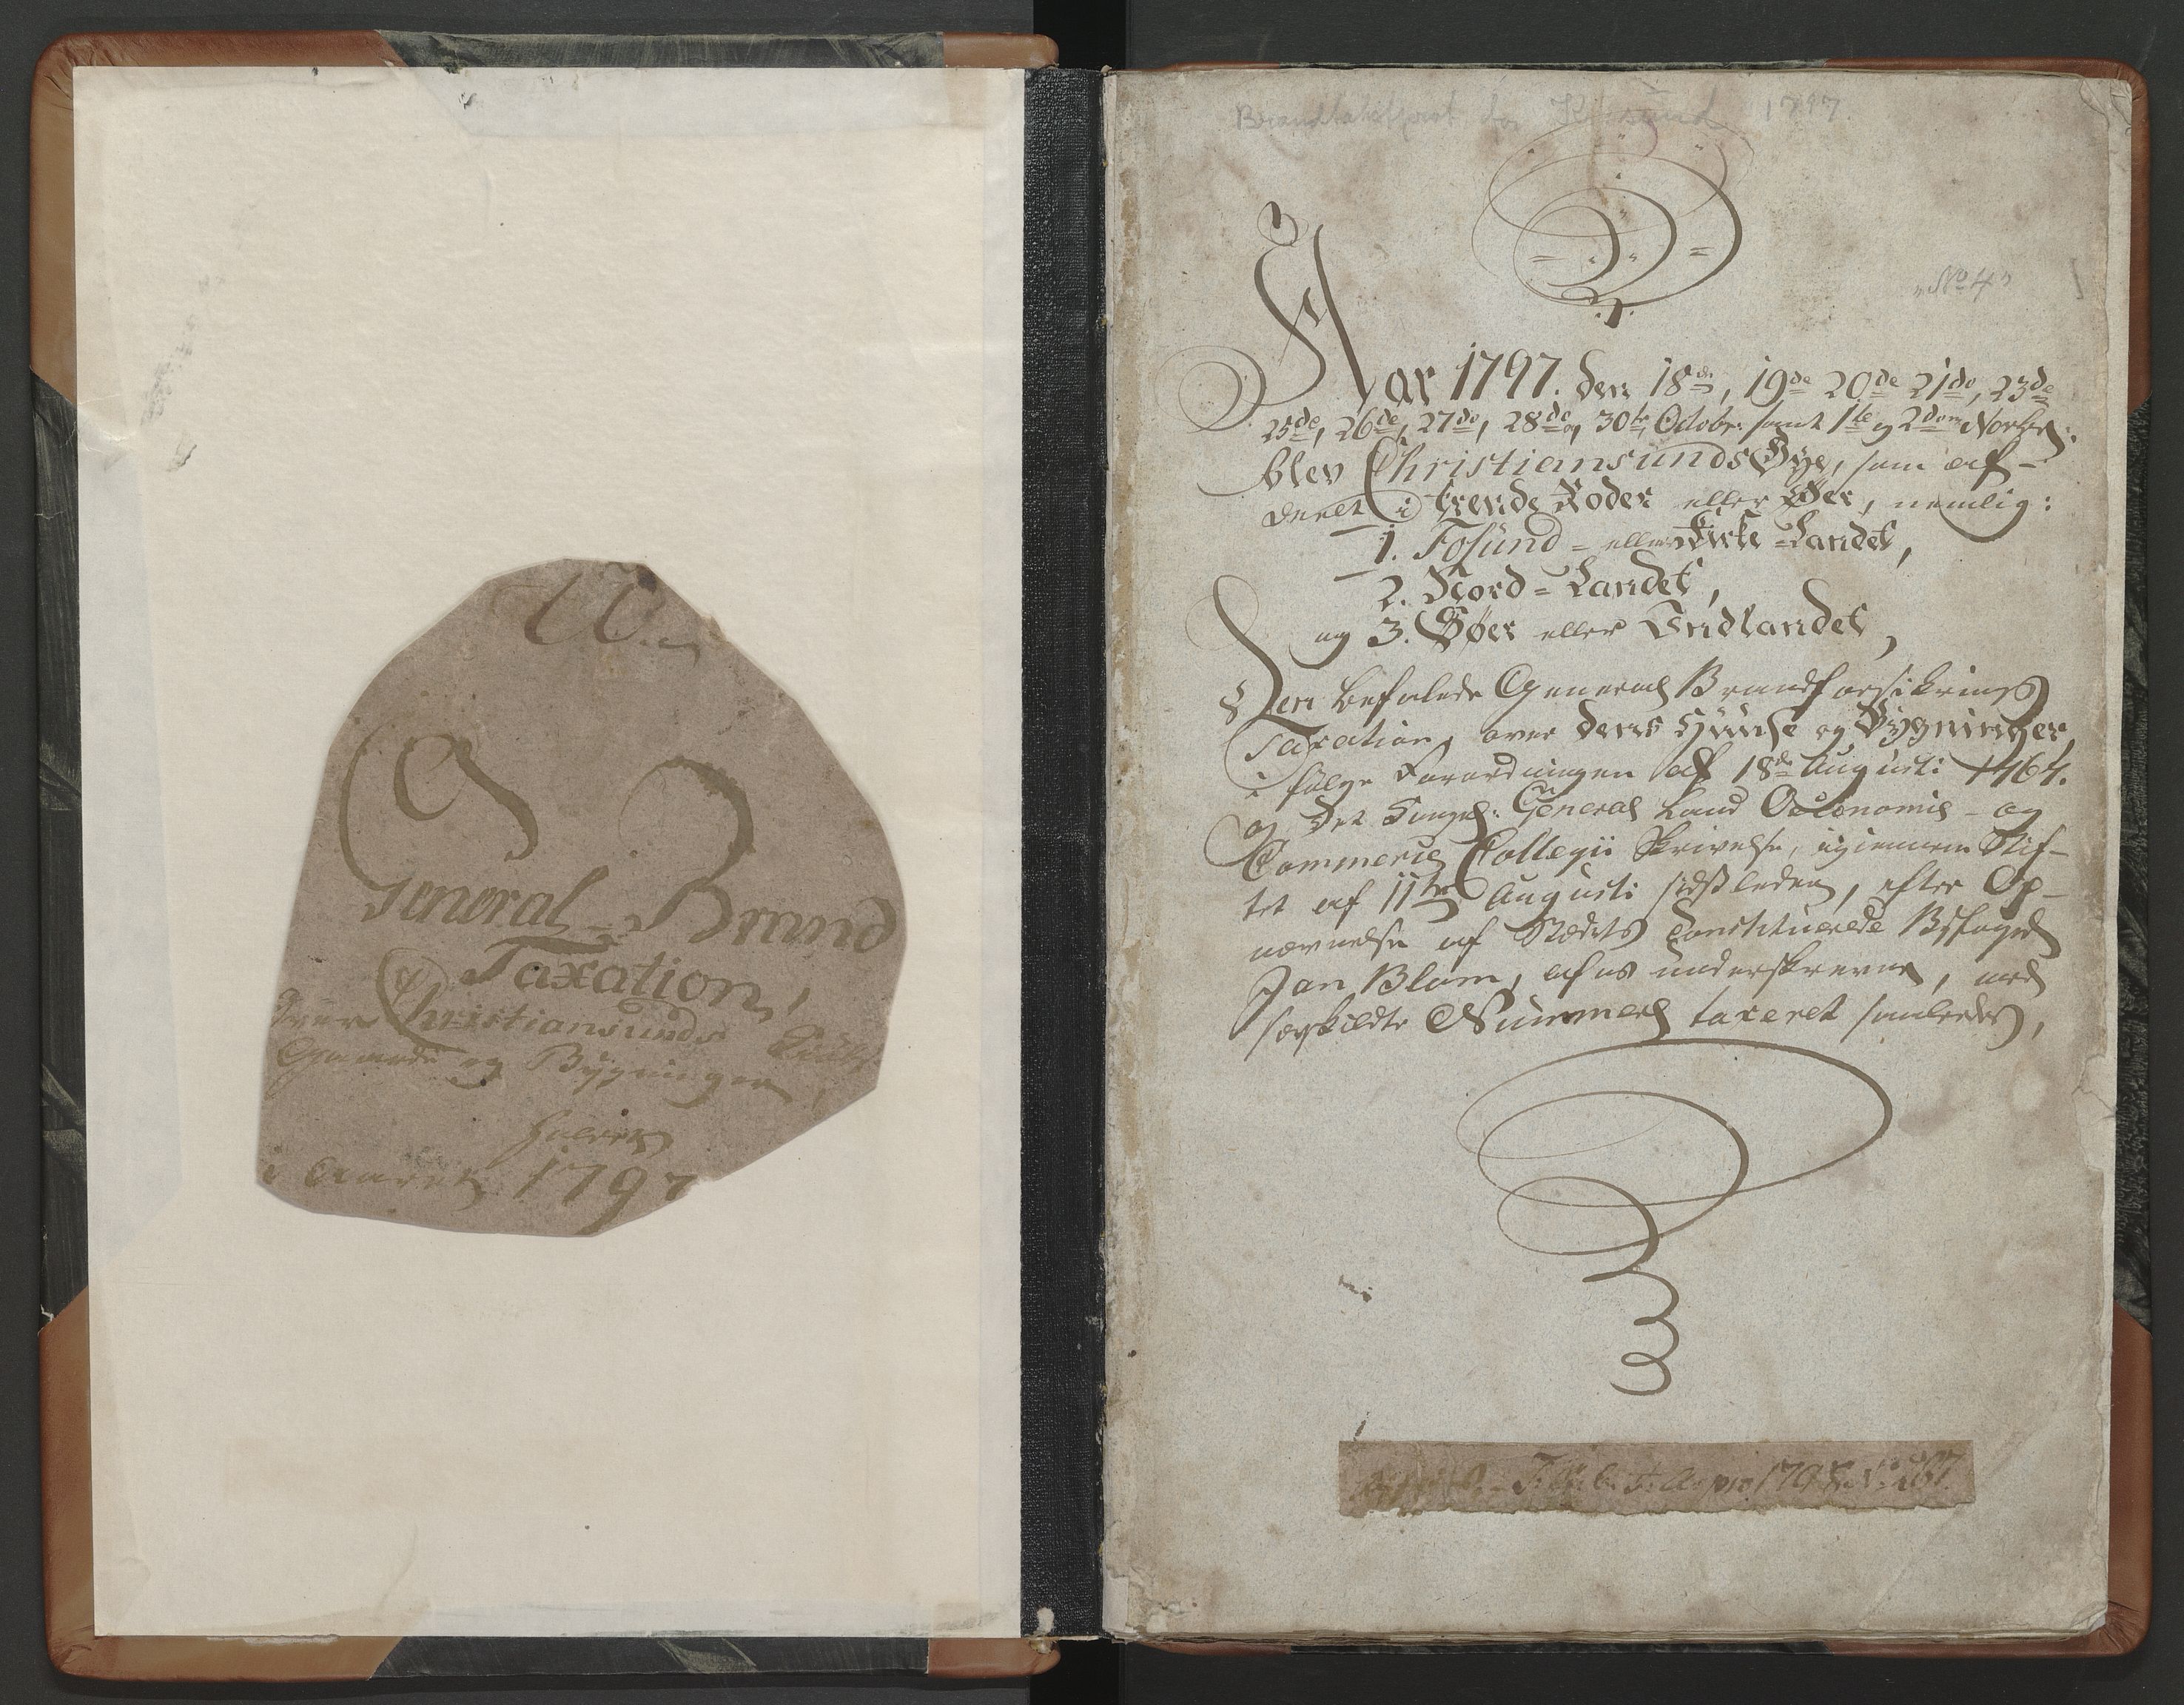 General Brand
Taxation,
Over Christiansunds
Gaarde og Bygninger
holden
i Aaret 1797
1797
No 4
Aar 1797. den 18de, 19de 20de 21de, 23de
25de, 26de, 27de, 28de og 30te Octobr. samt 1te og 2den Novbr.
blev Christiansunds Bye, som af-
deelt i trende Roder eller Øer, nemlig:
1. Fosund- eller Kirke-Landet,
2. Nord-Landet,
og 3. Søer eller Indlandet,
Den befalede General Brandforsikrings
Taxation, over dens Huuse og Bygninger,
i følge Forordningen af 18de Augusti 1764.
og Det Kongel: General Land Oeconomie- og
Commercie Collegii Skrivelse, igiennem Stif-
tet af 11te Augusti sidstleden, efter Op-
nævnelse af Stædets Constituerede Byfoged
Jan Blom, af os underskrevne, med
særskildte Nummer taxeret saaledes,